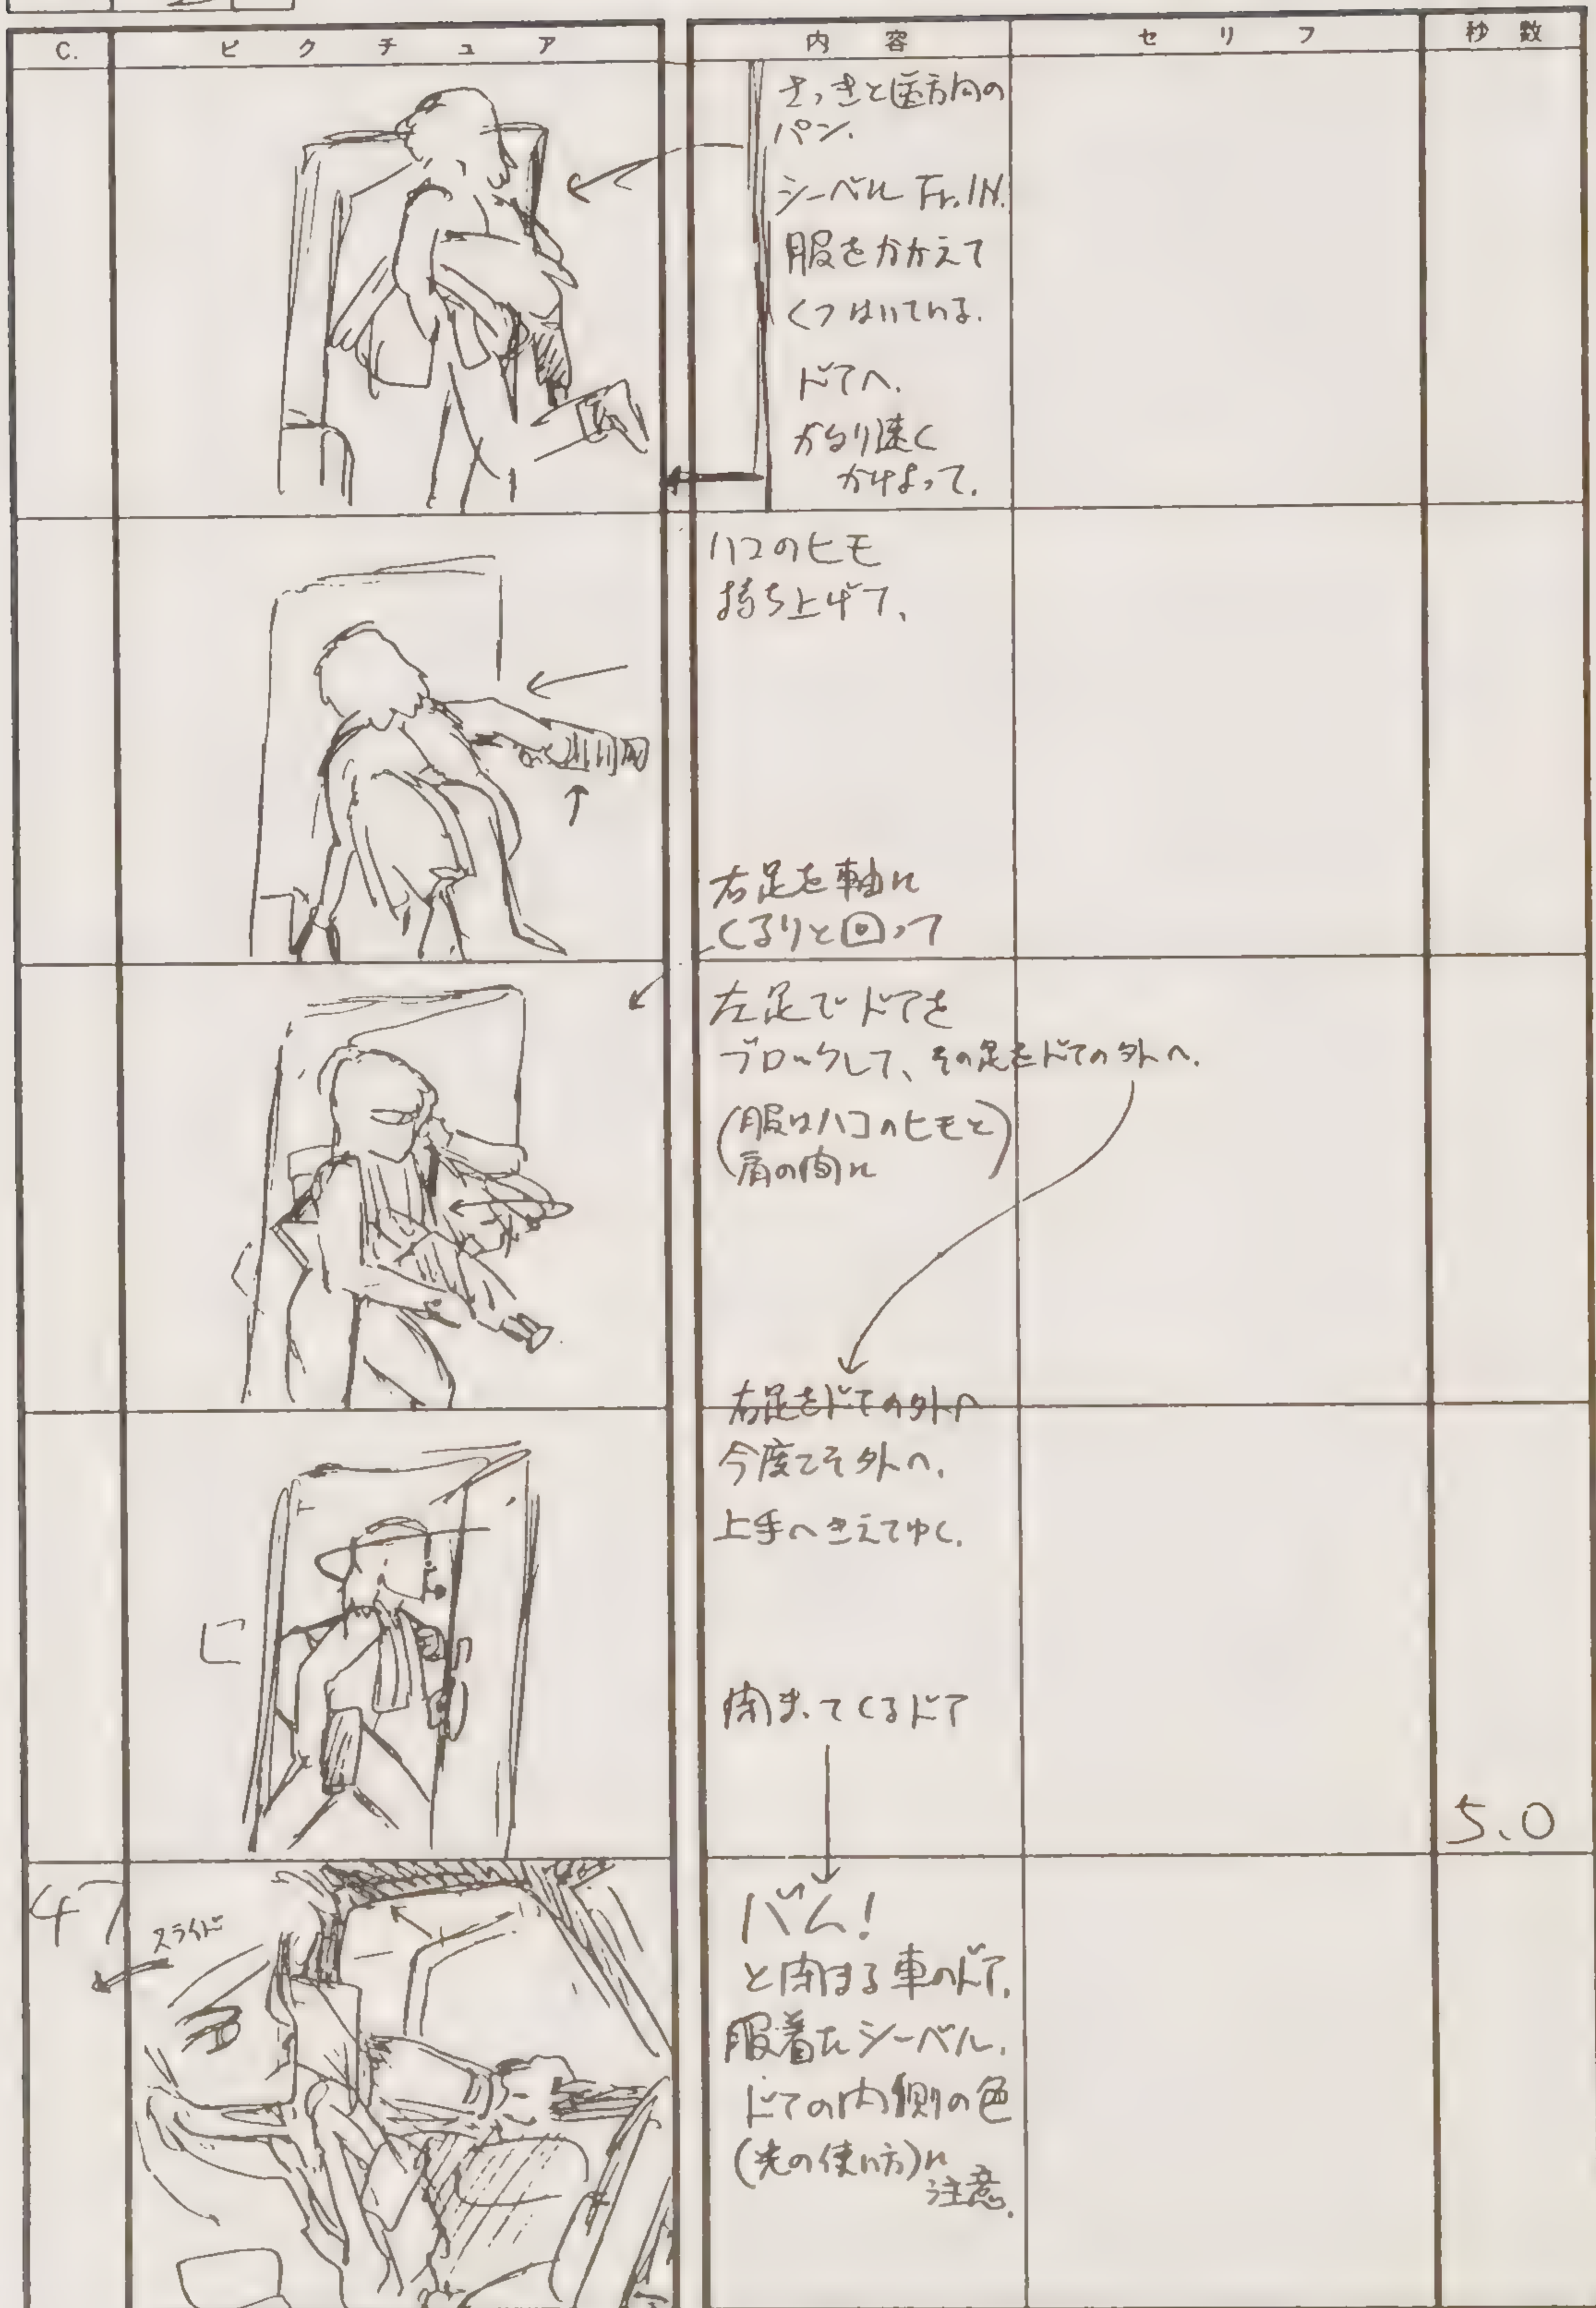 C.
ピクチュア
内容
セリフ
秒数
さっきと逆方向の
パン.
シーベル Fr.IN.
服をかかえて
くつはいている.
ドアへ.
かなり速く
かけよって.
ハコのヒモ
持ち上げて、
右足を軸に
くるりと回って
左足でドアを
ブロックして、その足をドアの外へ.
(服はハコのヒモと
肩の間に)
右足をドアの外へ
今度こそ外へ.
上手へきえてゆく.
閉まってくるドア
5.0
47
スライド
バム!
と閉まる車のドア.
服着たシーベル.
ドアの内側の色
(光の使い方)に
注意.